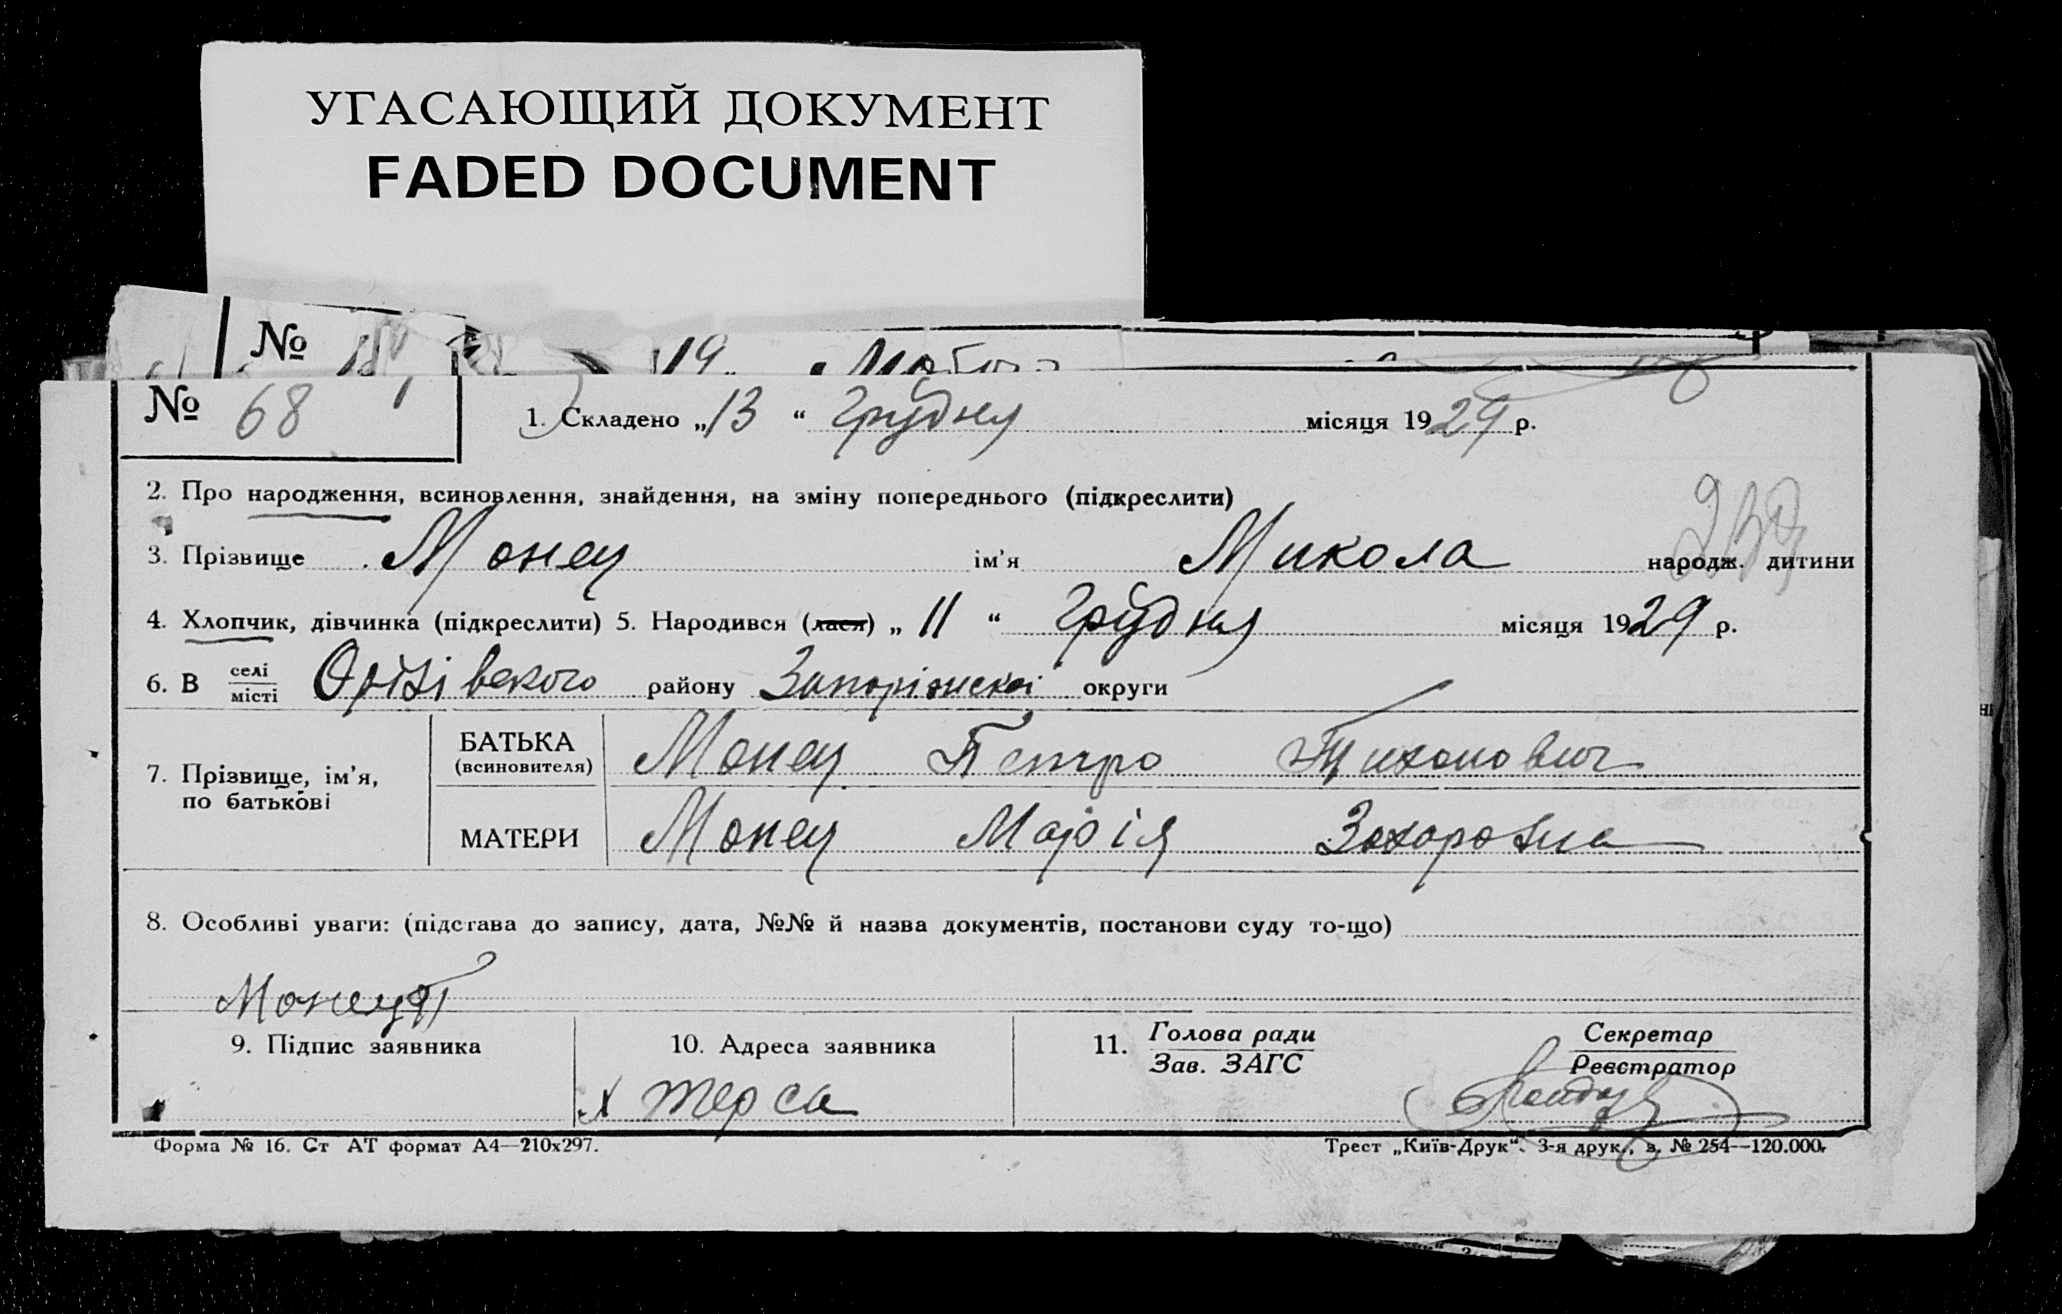 УГАСАЮЩИЙ ДОКУМЕНТ
FADED DOCUMENT
№ 19
№ 68 1. Складено „13“ Грудня місяця 1929 р.
2. Про народження, всиновлення, знайдення, на зміну попереднього (підкреслити)
3. Прізвище Монец ім’я Микола народж. дитини
4. Хлопчик, дівчинка (підкреслити) 5. Народився (лася) „11“ Грудня місяця 1929 р.
6. В селі місті Оріхівського району Запоріжскої округи
7. Прізвище, ім’я, по батькові
БАТЬКА (всиновителя) Монец Петро Тихонович
МАТЕРИ Монец Марія Захаровна
8. Особливі уваги: (підстава до запису, дата, №№ й назва документів, постанови суду то-що)
Монец П
9. Підпис заявника 10. Адреса заявника 11. Голова ради Зав. ЗАГС Секретар Реєстратор
х Терса
Форма № 16. Ст АТ формат А4—210х297. Трест „Київ-Друк“. 3-я друк., з. № 254—120.000.